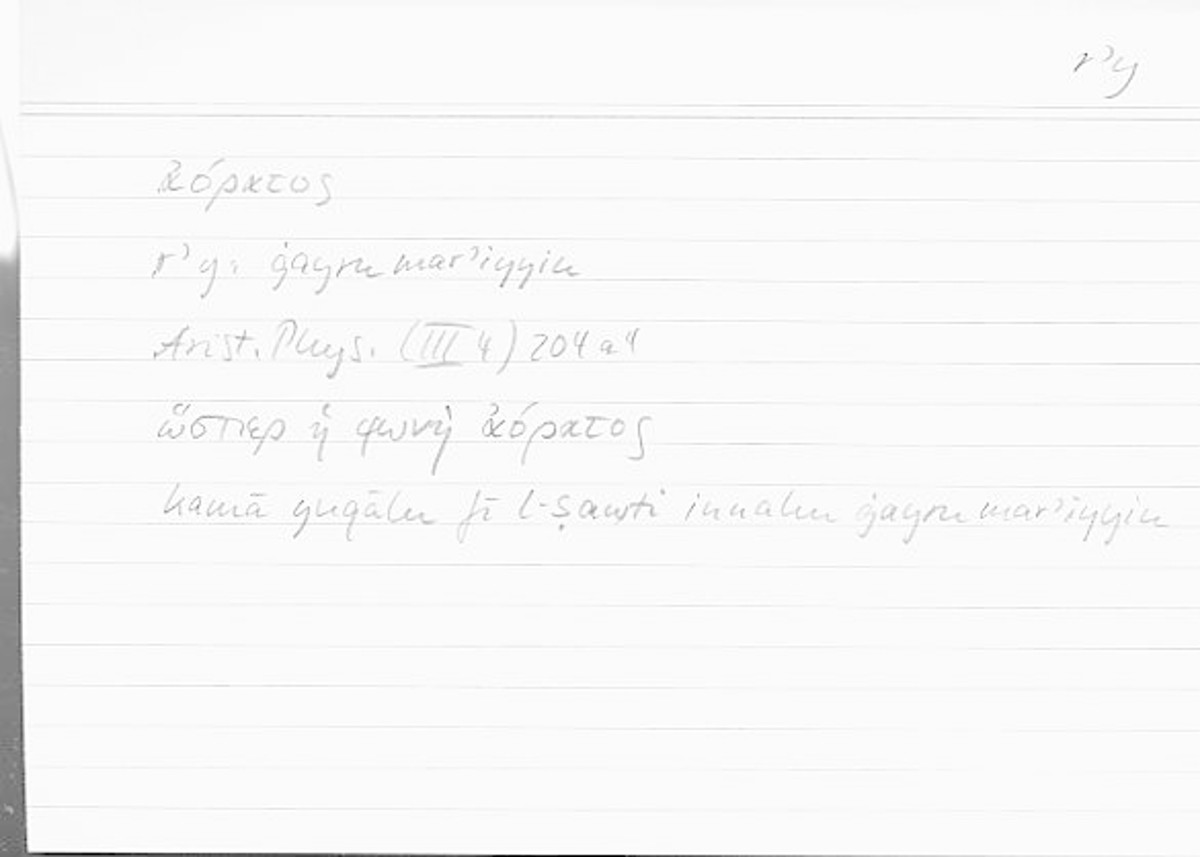 rʾy
ἀόρατος
rʾy: ġayru marʾiyyin
Arist. Phys. (III 4) 204 a 4
ὥσπερ ἡ φωνὴ ἀόρατος
kamā yuqālu fī l-ṣawti innahu ġayru marʾiyyin